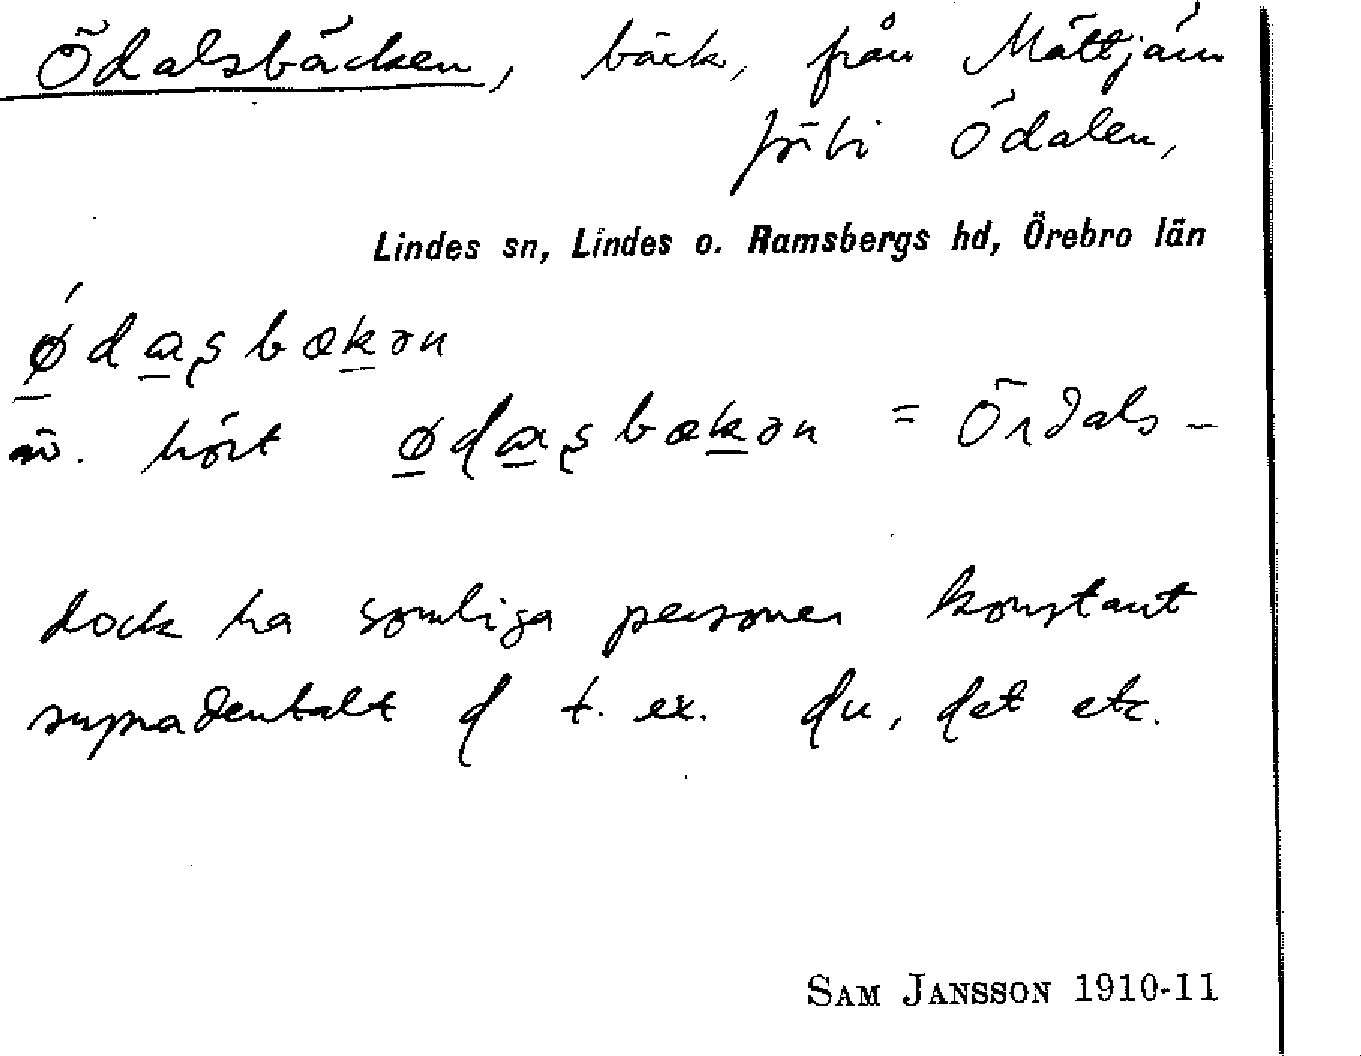 Ödalsbäcken, bäck, från Mättjärn
förbi Ödalen,
Lindes sn, Lindes o. Ramsbergs hd, Örebro län
ǿdaşbækən
hört ødaşbækən = Ördals-
dock ha somliga personer konstant
supradentalt ɖ t. ex. ɖu, ɖet etc.
SAM JANSSON 1910-11